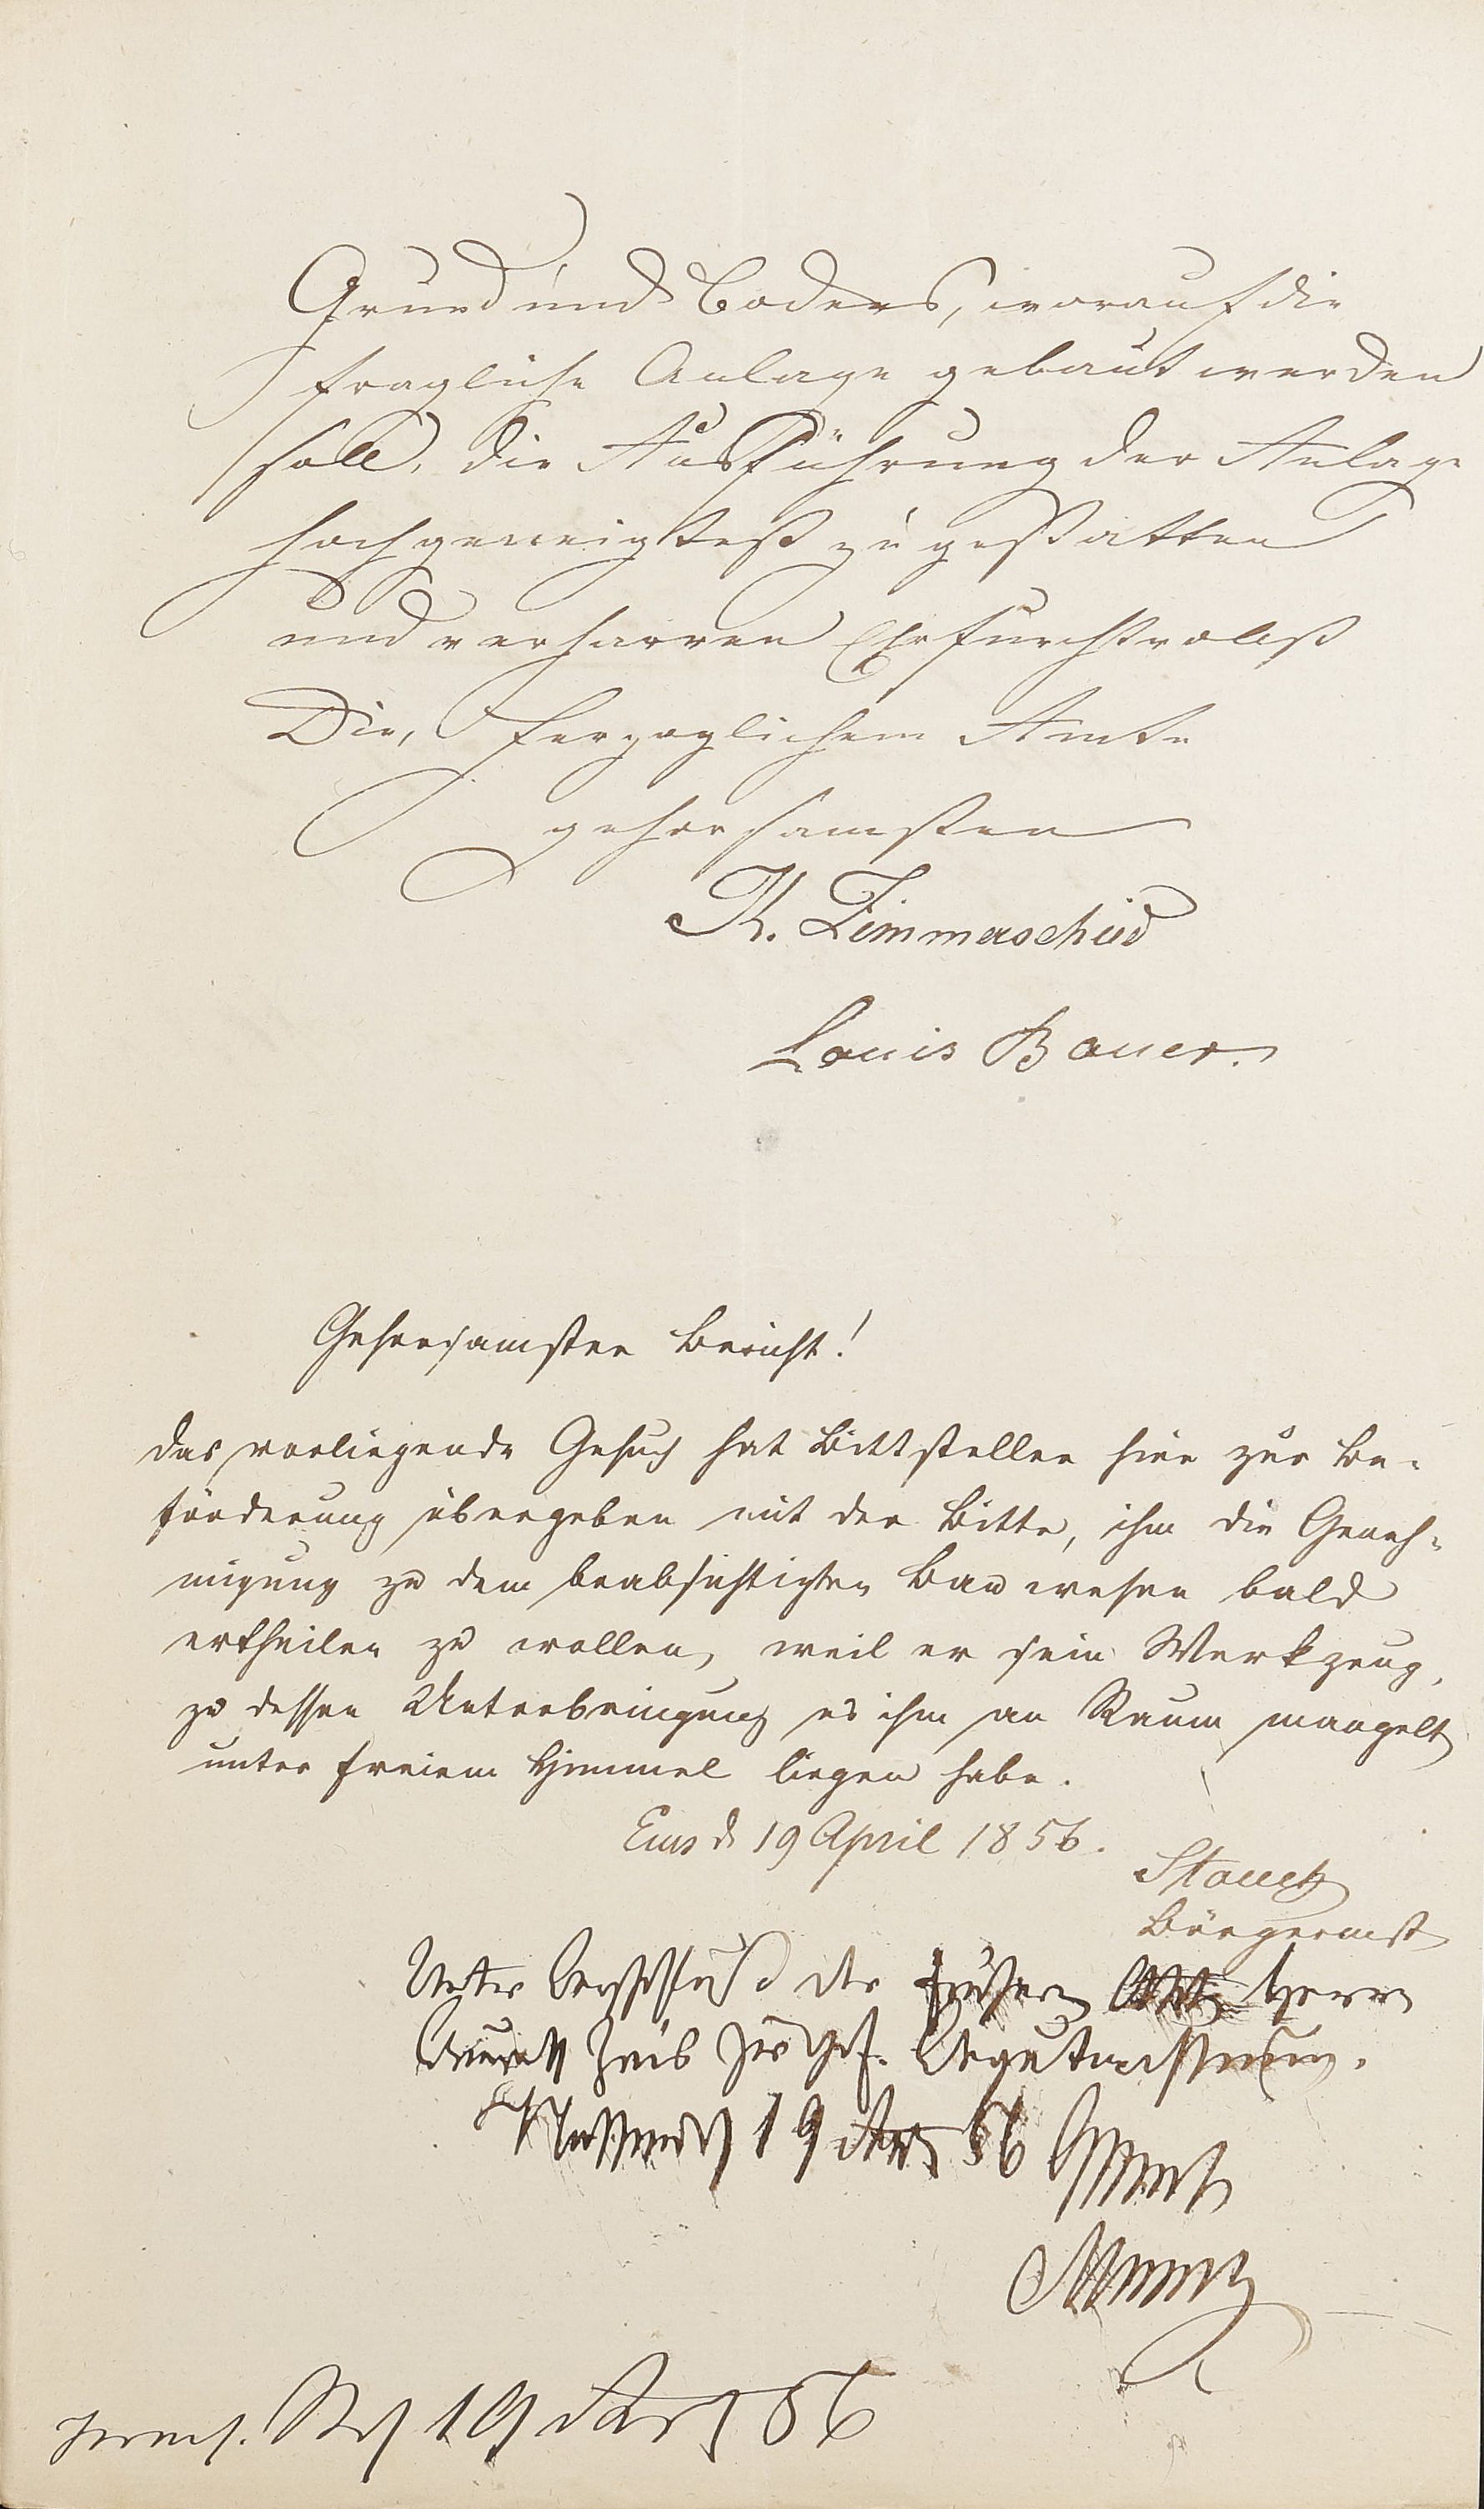 Grund und Bodens, worauf die
fragliche Anlage gebaut werden
soll, die Ausführung der Anlage
hochgeneigtest zu gestatten
und verharren Ehrfurchtvollst
Die, Herzoglichem Amte
gehorsamsten
K. Zimmerschied
Louis Bauer.
Gehorsamster Bericht!
Das vorliegende Gesuch hat Bittsteller hier zur Be-
förderung übergeben mit der Bitte, ihm die Geneh-
migung zu dem beabsichtigten Bauwesen bald
ertheilen zu wollen, weil er sein Werkzeug,
zu dessen Unterbringung es ihm an Raum mangelt
unter freiem Himmel liegen habe.
Ems d 19 April 1856.
Bürgermst
Unter der Herrn
zur gef. Begutachtung.
Nassau 19 56
19 56